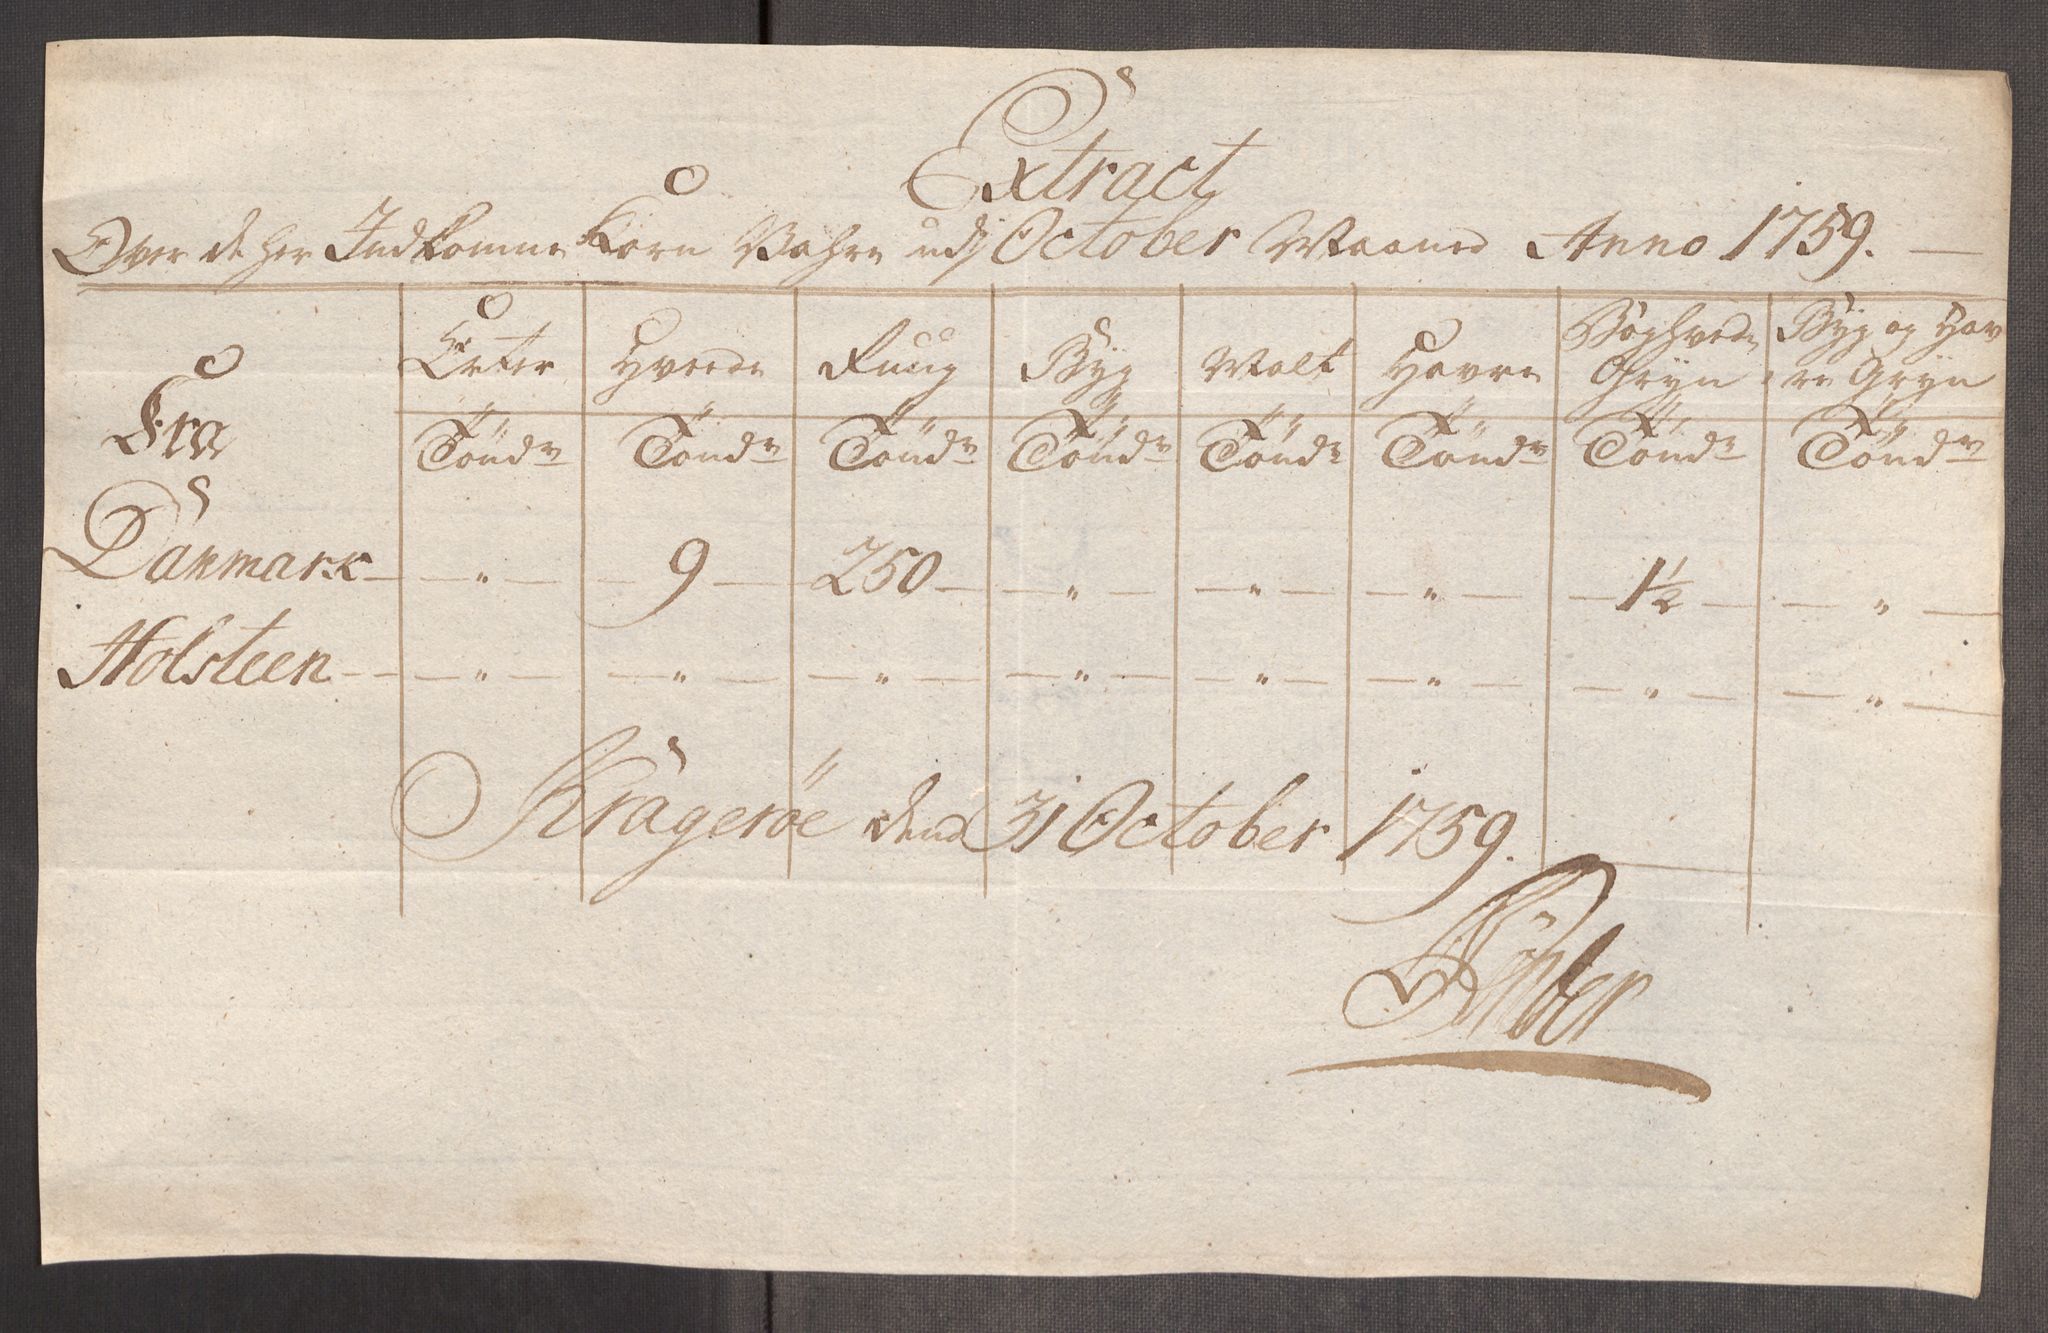 Extract
Over de her Indkomne Korn Vahre udj October Maaned Anno 1759.
Fra Erter Hvede Ruug Byg Malt Havre Boghvede Gryn Byg og Havre Gryn
Tönder Tönder Tönder Tönder Tönder Tönder Tönder Tönder
Danmark — " — 9 — 250 — " — " — " — 1½ — " —
Holsteen — " — " — " — " — " — " — " — " —
Kragerøe dend 31 October 1759.